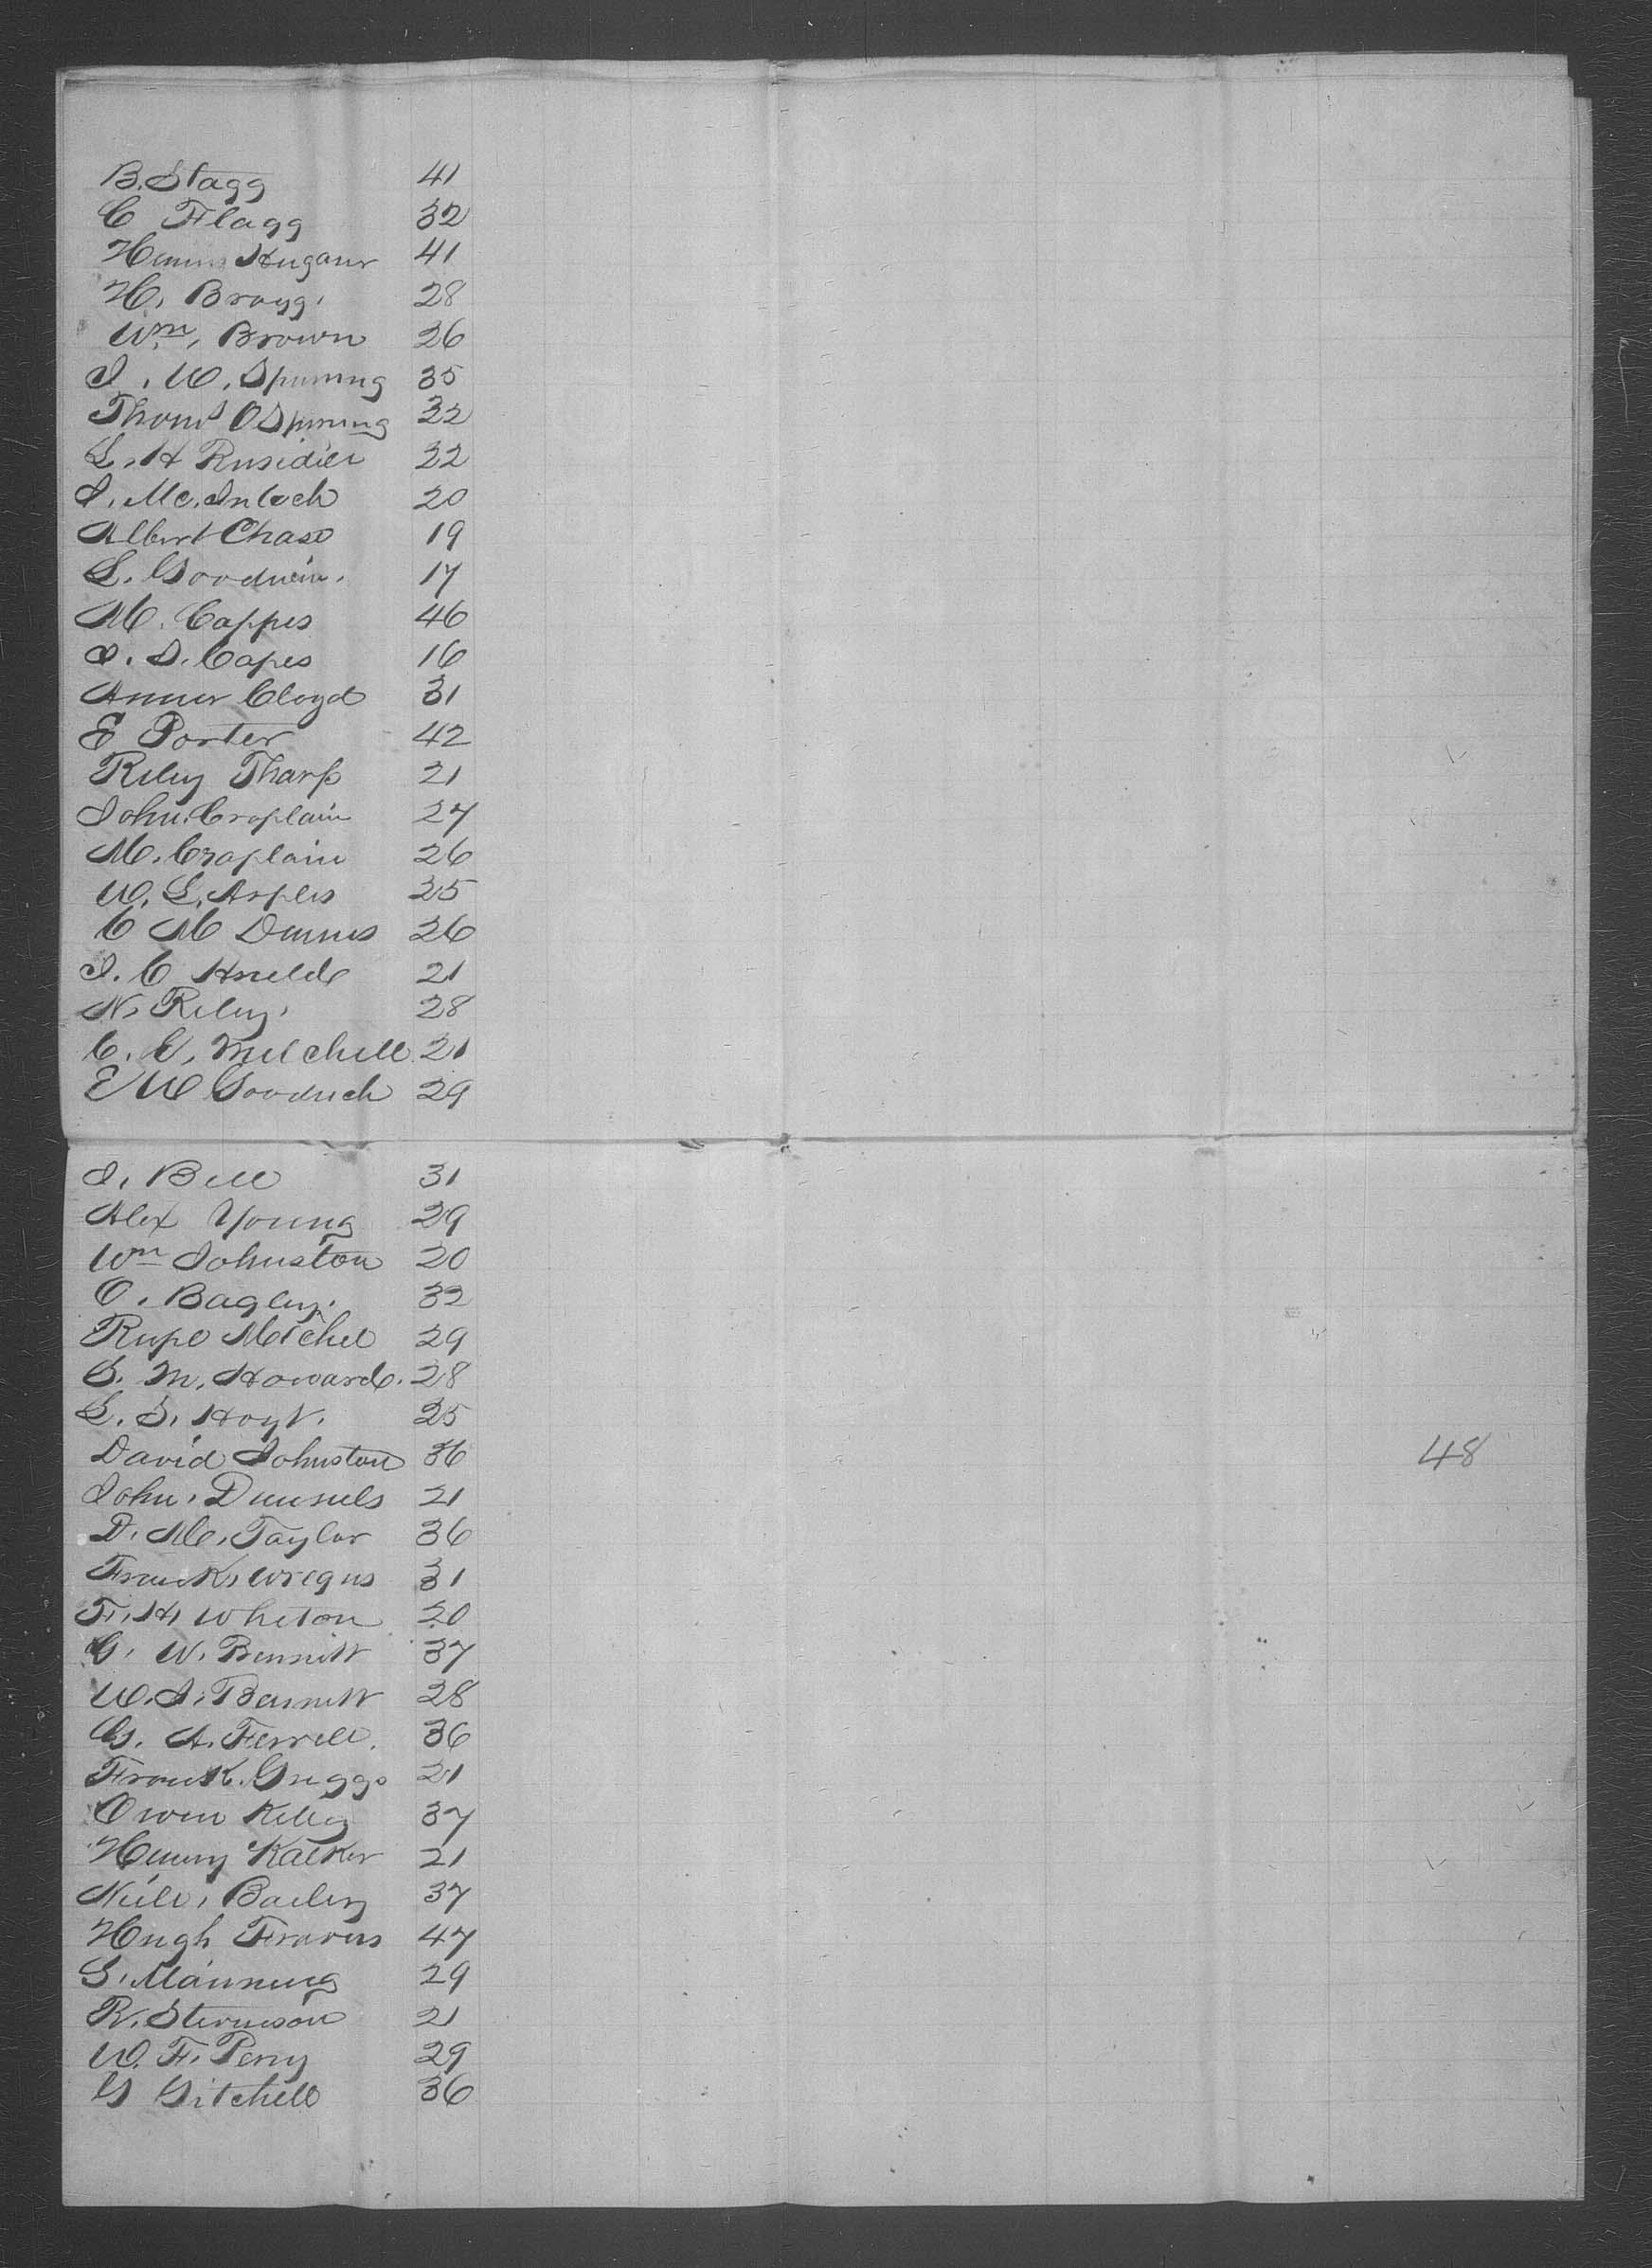 B. Stagg 41
C Flagg 32
Hugans 41
H. Bragg. 28
Wm. Brown 26
J. W. Spining 35
Thoms O Spining 22
L. H Rusidier 22
J. Mc. Intoch 20
Albert Chase 19
L. Goodwin. 17
M. Cappes 46
J. D. Capes 16
Anner Cloyd 31
E Porter 42
Riley Tharp 21
John Craplain 27
M. Craplain 26
W. L. Arples 25
C M Dennis 26
J. C 21
N. Riley. 28
C. E. Mitchell 21
E W Goodrich 29
J. Bell 31
Alex Young 29
Wm Johnston 20
O. Bagley. 32
Rupe Mitchel 29
S. M. Howard. 28
L. S. Hoyt. 25
David Johnston 36
48
John. Dunnels 21
D. M. Taylor 36
Frank Wregus 31
F. H. Wheton 20
G. W. Bennett 37
W. J. Bennett 28
G. A. Ferrell. 36
Frank. Griggs 21
Owen Kelley 37
Henry Kalker 21
Neile. Bailey 37
Hugh Travers 47
S. Manning 29
R. Sterneson 21
W. F. Perry 29
G Gitchell 36